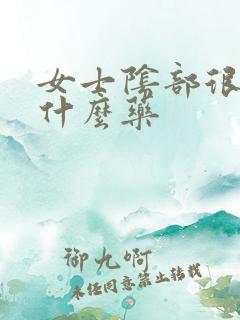 女士陰部很
什麼藥
御九啊
未经同意禁止转载